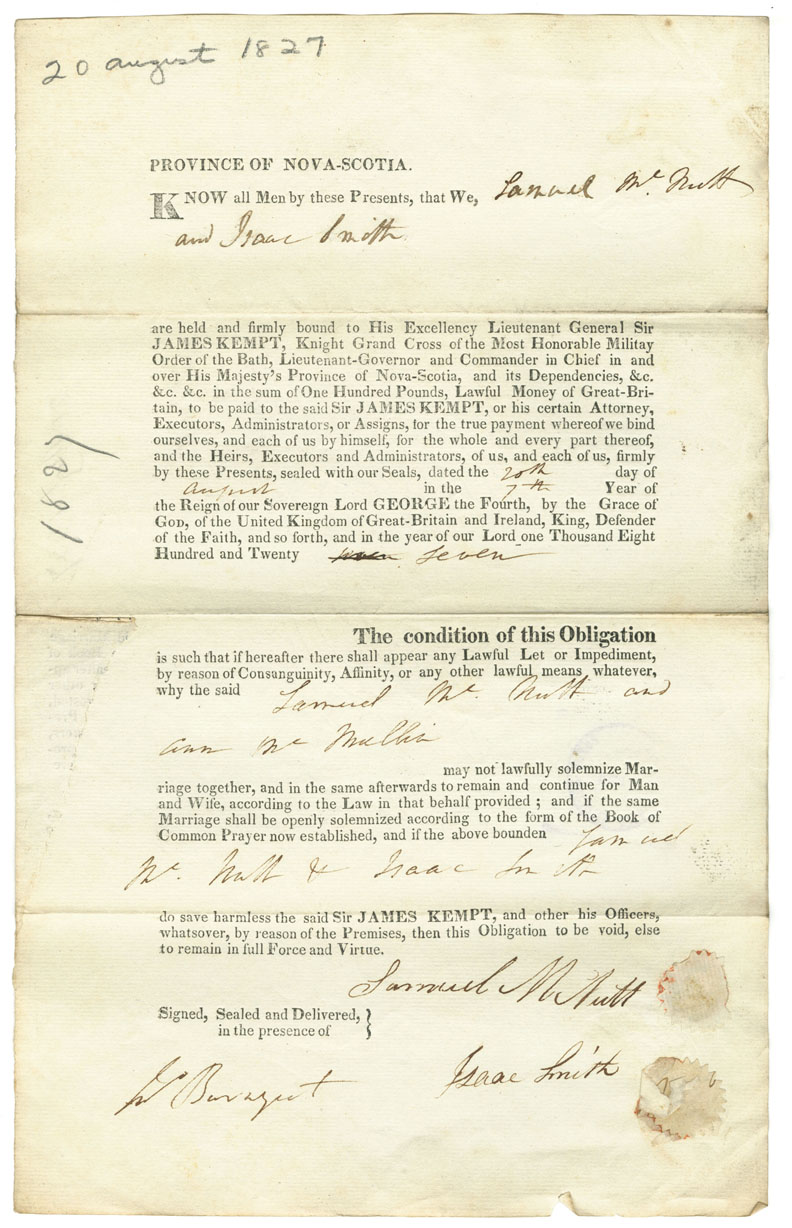 20 august 1827
PROVINCE OF NOVA-SCOTIA.
KNOW all Men by these Presents, that We, Samuel Mc Nutt
and Isaac Smith
are held and firmly bound to His Excellency Lieutenant General Sir
JAMES KEMPT, Knight Grand Cross of the Most Honorable Militay
Order of the Bath, Lieutenant-Governor and Commander in Chief in and
over His Majesty's Province of Nova-Scotia, and its Dependencies, &c.
&c. &c. in the sum of One Hundred Pounds, Lawful Money of Great-Bri-
tain, to be paid to the said Sir JAMES KEMPT, or his certain Attorney,
Executors, Administrators, or Assigns, for the true payment whereof we bind
ourselves, and each of us by himself, for the whole and every part thereof,
and the Heirs, Executors and Administrators, of us, and each of us, firmly
by these Presents, sealed with our Seals, dated the 20th day of
august in the 7th Year of
the Reign of our Sovereign Lord GEORGE the Fourth, by the Grace of
GOD, of the United Kingdom of Great-Britain and Ireland, King, Defender
of the Faith, and so forth, and in the year of our Lord one Thousand Eight
Hundred and Twenty Seven
1827
The condition of this Obligation
is such that if hereafter there shall appear any Lawful Let or Impediment,
by reason of Consanguinity, Affinity, or any other lawful means whatever,
why the said Samuel Mc Nutt and
ann Mc Mullin
may not lawfully solemnize Mar-
riage together, and in the same afterwards to remain and continue for Man
and Wife, according to the Law in that behalf provided ; and if the same
Marriage shall be openly solemnized according to the form of the Book of
Common Prayer now established, and if the above bounden Samuel
Mc. Nutt & Isaac Smith
do save harmless the said Sir JAMES KEMPT, and other his Officers,
whatsover, by reason of the Premises, then this Obligation to be void, else
to remain in full Force and Virtue.
Samuel McNutt
Signed, Sealed and Delivered, }
in the presence of
Isaac Smith